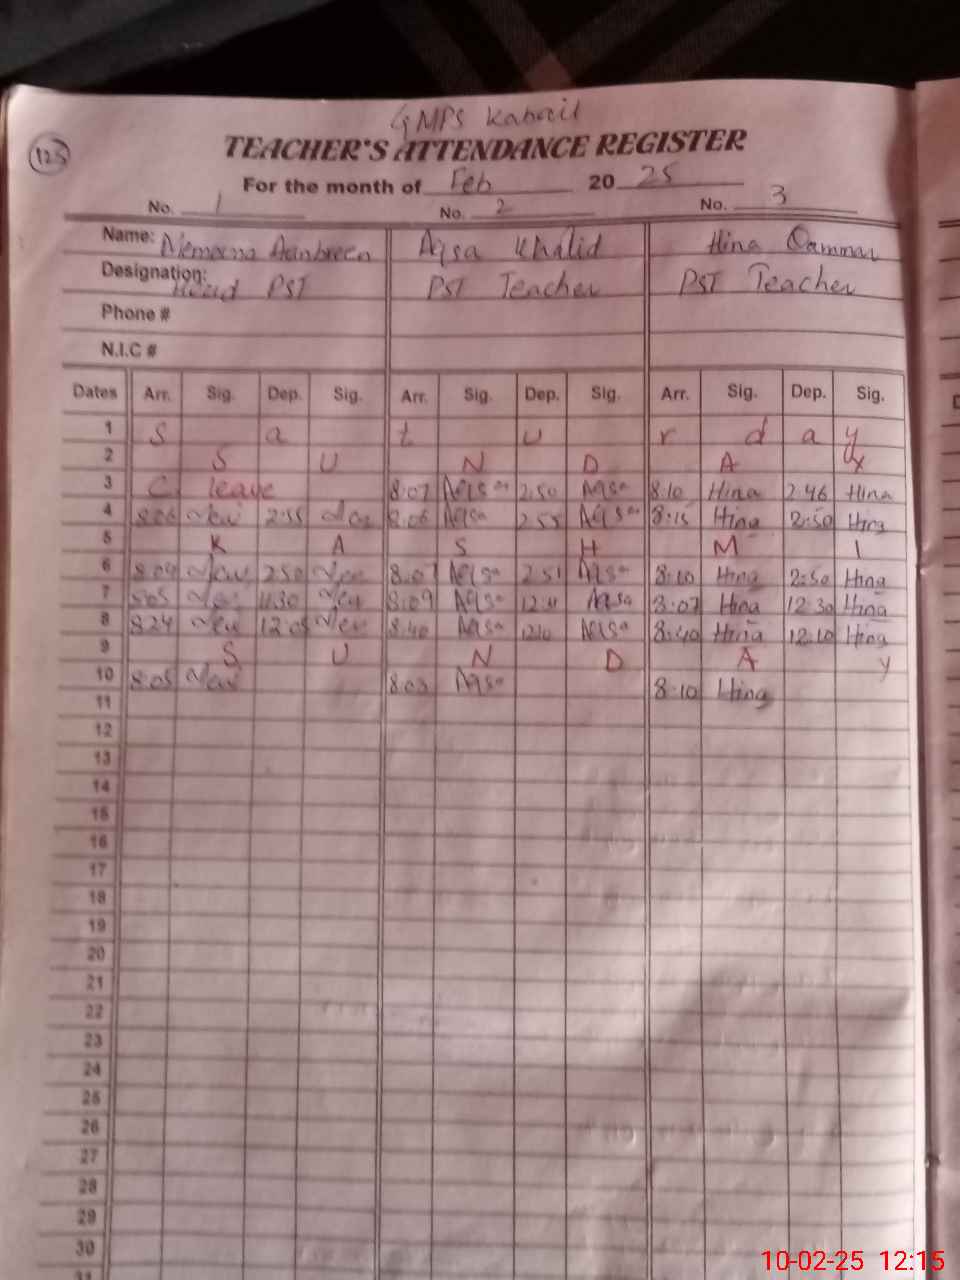 GMPS Kabroil
123
TEACHER'S ATTENDANCE REGISTER
For the month of Feb 2025
No. 1 No. 2 No. 3
Name: Aanbreen Aqsa Khalid Hina Qammar
Designation: Head PST PST Teacher PST Teacher
Phone #
N.I.C #
Dates Arr. Sig. Dep. Sig. Arr. Sig. Dep. Sig. Arr. Sig. Dep. Sig.
1 S a t u r d a y
2 S U N D A y
3 C leave 8:07 Aqsa 2:50 Aqsa 8:10 Hina 2:46 Hina
4 8:06 2:55 8:06 Aqsa 2:55 Aqsa 8:15 Hina 2:50 Hina
5 K A S H M I
6 8:04 2:50 8:07 Aqsa 2:51 Aqsa 8:10 Hina 2:50 Hina
7 8:05 8:09 Aqsa Aqsa 8:07 Hina 12:30 Hina
8 8:24 8:40 Aqsa 12:10 Aqsa 8:40 Hina 12:10 Hina
9 S U N D A y
10 8:05 8:03 Aqsa 8:10 Hina
11
12
13
14
15
16
17
18
19
20
21
22
23
24
25
26
27
28
29
30
31
10-02-25 12:15